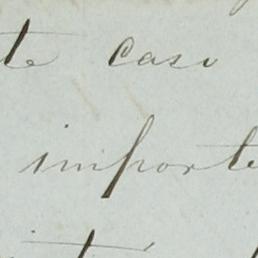 te caso
importe